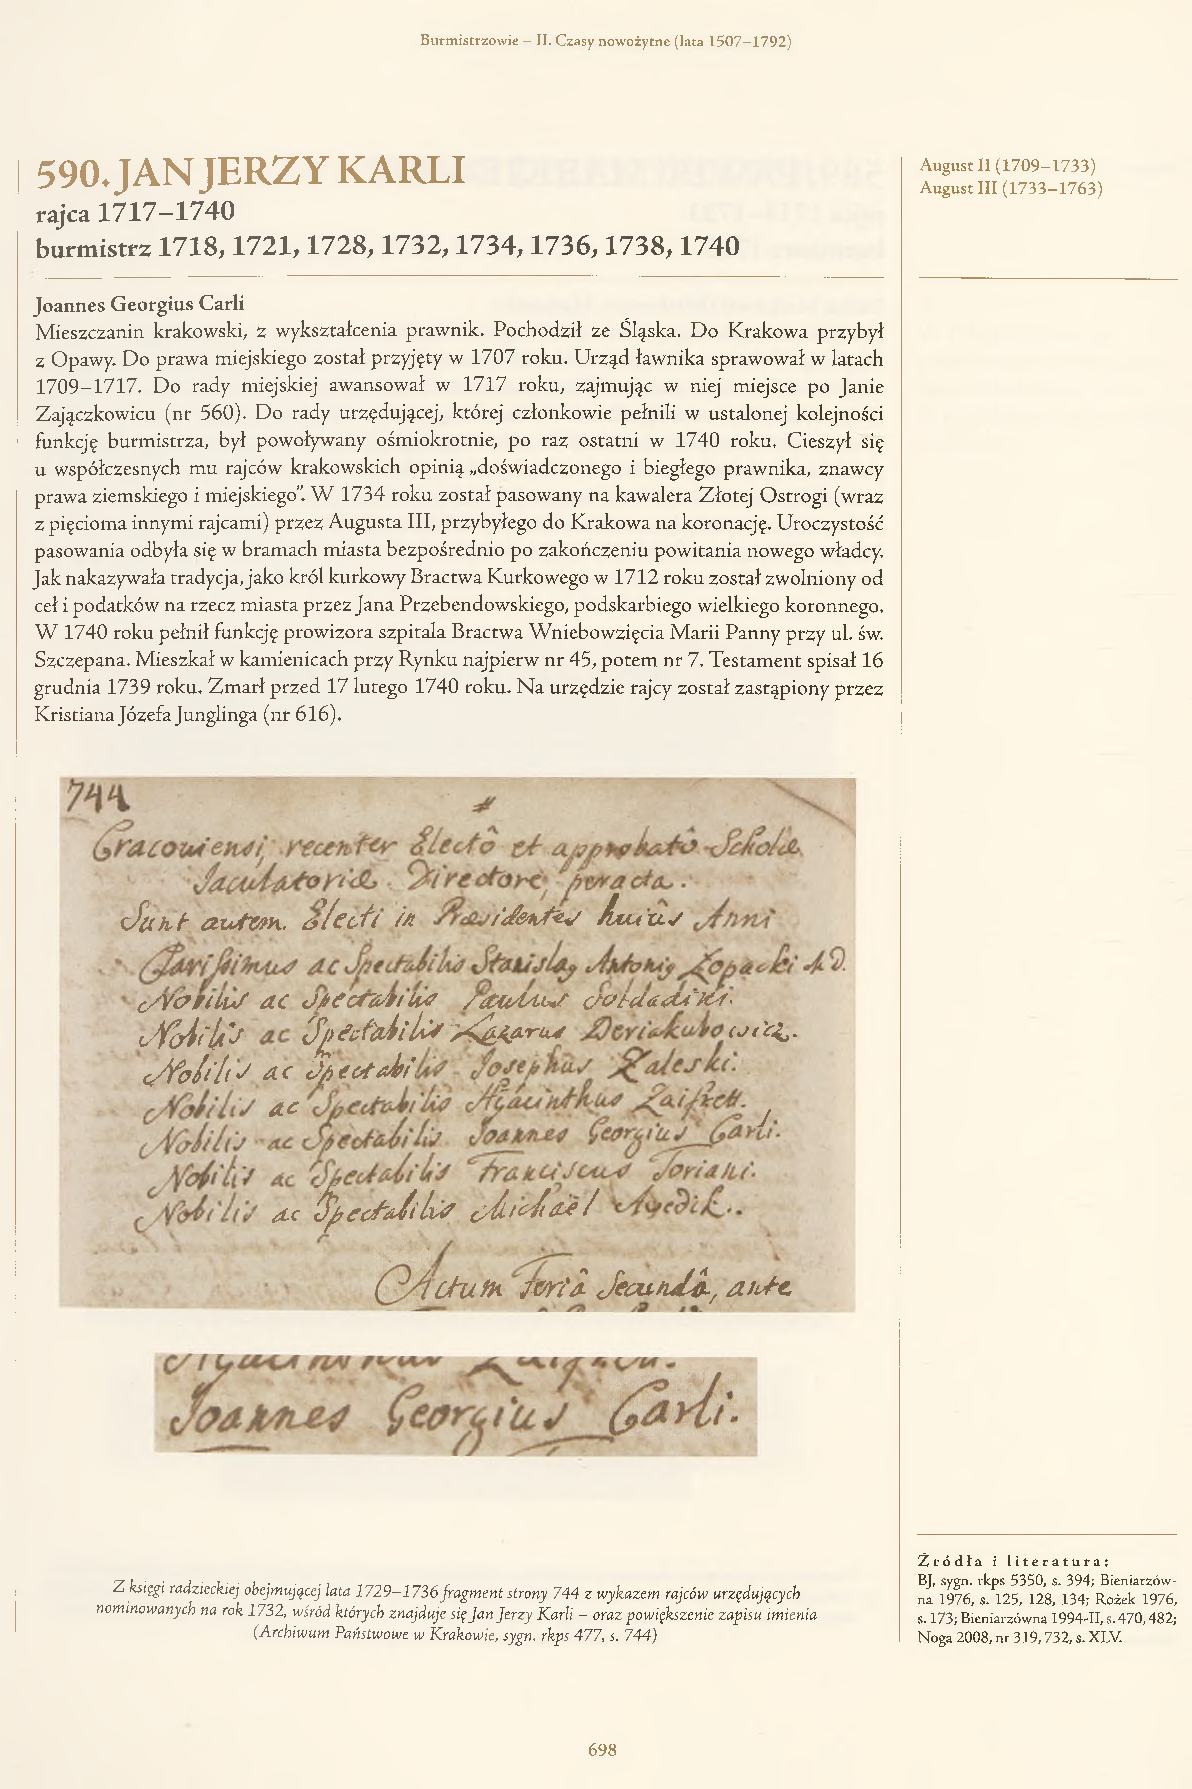 Burmistrzowie – II. Czasy nowożytne (lata 1507–1792)
590. JAN JERZY KARLI
rajca 1717–1740
burmistrz 1718, 1721, 1728, 1732, 1734, 1736, 1738, 1740
August II (1709–1733)
August III (1733–1763)
Joannes Georgius Carli
Mieszczanin krakowski, z wykształcenia prawnik. Pochodził ze Śląska. Do Krakowa przybył
z Opawy. Do prawa miejskiego został przyjęty w 1707 roku. Urząd ławnika sprawował w latach
1709–1717. Do rady miejskiej awansował w 1717 roku, zajmując w niej miejsce po Janie
Zajączkowicu (nr 560). Do rady urzędującej, której członkowie pełnili w ustalonej kolejności
funkcję burmistrza, był powoływany ośmiokrotnie, po raz ostatni w 1740 roku. Cieszył się
u współczesnych mu rajców krakowskich opinią „doświadczonego i biegłego prawnika, znawcy
prawa ziemskiego i miejskiego”. W 1734 roku został pasowany na kawalera Złotej Ostrogi (wraz
z pięcioma innymi rajcami) przez Augusta III, przybyłego do Krakowa na koronację. Uroczystość
pasowania odbyła się w bramach miasta bezpośrednio po zakończeniu powitania nowego władcy.
Jak nakazywała tradycja, jako król kurkowy Bractwa Kurkowego w 1712 roku został zwolniony od
ceł i podatków na rzecz miasta przez Jana Przebendowskiego, podskarbiego wielkiego koronnego.
W 1740 roku pełnił funkcję prowizora szpitala Bractwa Wniebowzięcia Marii Panny przy ul. św.
Szczepana. Mieszkał w kamienicach przy Rynku najpierw nr 45, potem nr 7. Testament spisał 16
grudnia 1739 roku. Zmarł przed 17 lutego 1740 roku. Na urzędzie rajcy został zastąpiony przez
Kristiana Józefa Junglinga (nr 616).
744
Cracoviensi, recenter Electô et approbatô Scholæ
Jaculatoriæ Directore, peracta.
Sunt autem Electi in Præsidentes huiûs Anni
Clarissimus ac Spectabilis Stanislaq Antoniq Łopacki M.D.
Nobilis ac Spectabilis Paulus Soldadini.
Nobilis ac Spectabilis Lazarus Deriakubowicz.
Nobilis ac Spectabilis Josephus Zaleski.
Nobilis ac Spectabilis Hyacinthus Zaifrett.
Nobilis ac Spectabilis Joannes Georgius Carli.
Nobilis ac Spectabilis Franciscus Toriani.
Nobilis ac Spectabilis Michaël Awedik.
Actum Feriâ Secundâ, ante
Joannes Georgius Carli.
Z księgi radzieckiej obejmującej lata 1729–1736 fragment strony 744 z wykazem rajców urzędujących
nominowanych na rok 1732, wśród których znajduje się Jan Jerzy Karli – oraz powiększenie zapisu imienia
(Archiwum Państwowe w Krakowie, sygn. rkps 477, s. 744)
Źródła i literatura:
BJ, sygn. rkps 5350, s. 394; Bieniarzów-
na 1976, s. 125, 128, 134; Rożek 1976,
s. 173; Bieniarzówna 1994-II, s. 470, 482;
Noga 2008, nr 319, 732, s. XLV.
698